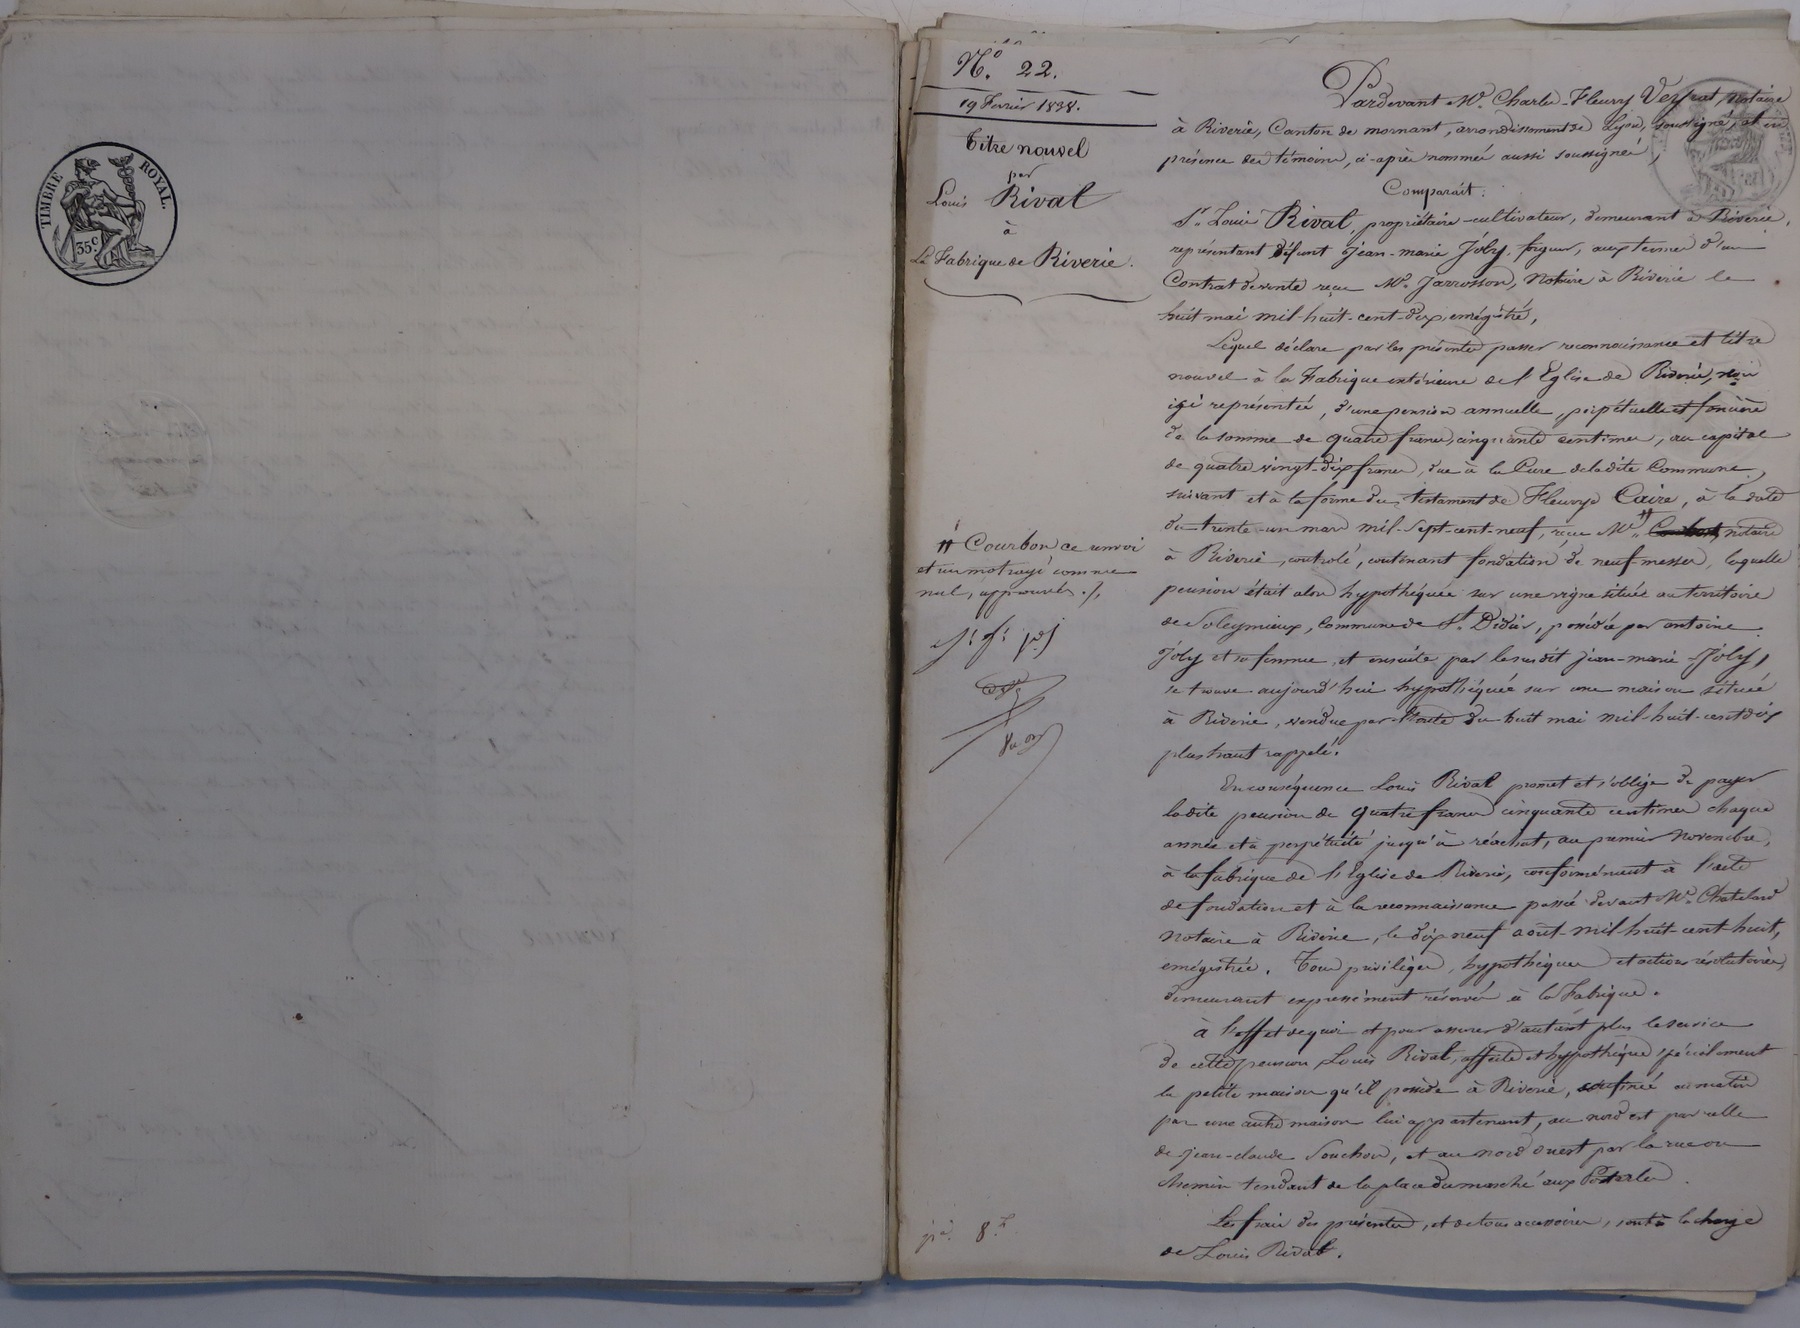 TIMBRE ROYAL.
35 c.
N.o 22.
19 Fevrier 1838.
Titre nouvel
par
Louis Rivat
à
La Fabrique de Riverie.
# Courbon ce renvoi
et un mot rayé comme
nul, approuvés ./.
pd. 8.
Pardevant Me. Charles-Fleury Veyrat, notaire
à Riverie, Canton de mornant, arrondissement de Lyon, soussigné, et en
présence des témoins, ci-après nommés aussi soussignés,
Comparait.
Sr. Louis Rivat, propriétaire-cultivateur, demeurant à Riverie,
représentant défunt Jean-marie Joly, aux termes d'un
Contrat de vente reçu Me. Jarrosson, Notaire à Riverie le
huit mai mil-huit-cent-dix, enrégistré,
Lequel déclare par les présentes passer reconnaissance et titre
nouvel à la Fabrique intérieure de l'Eglise de Riverie, non
ici représentée, d'une pension annuelle, perpétuelle et foncière
de la somme de quatre francs, cinquante centimes, au capital
de quatre vingt-dix francs, due à la Cure de ladite Commune,
suivant et à la forme du testament de Fleurye Caire, à la date
du trente-un mars mil-sept-cent-neuf, reçu Me. # notaire
à Riverie, controlé, contenant fondation de neuf messes, laquelle
pension était alors hypothéquée sur une vigne située au territoire
de Soleymieux, Commune de St. Didier, possédée par antoine
Joly et sa femme, et ensuite par le susdit Jean-marie Joly,
se trouve aujourd'hui hypothéquée sur une maison située
à Riverie, vendue par l'acte du huit mai mil-huit-cent dix
plus haut rappelé.
En conséquence Louis Rivat promet et s'oblige de payer
ladite pension de quatre francs cinquante centimes chaque
année et à perpétuité jusqu'à réachat, au premier Novembre,
à la fabrique de l'Eglise de Riverie, conformément à l'acte
de fondation et à la reconnaissance passée devant Me. Chatelard
Notaire à Riverie, le dix neuf août mil-huit-cent-huit,
enrégistrée. Tous privilèges, hypothèques et actions résolutoires,
demeurant expressément réservés à la Fabrique.
à l'effet de quoi et pour assurer d'autant plus le service
de cette pension, Louis Rivat, affecte et hypothèque spécialement
la petite maison qu'il possède à Riverie, confinée au matin
par une autre maison lui appartenant, au nord est par celle
de Jean-claude Souchon, et au nord ouest par la rue ou
chemin tendant de la place du marché aux
Les frais des présentes, et de tous accessoires, sont à la charge
de Louis Rivat.